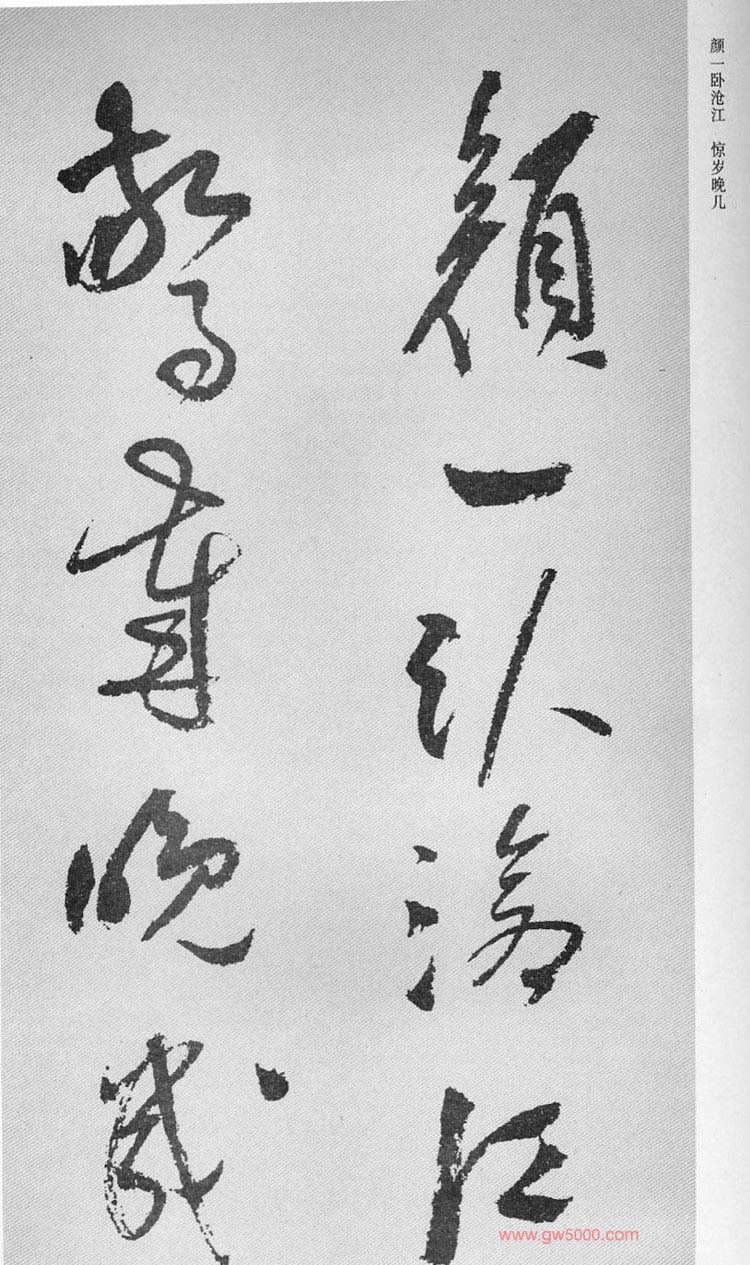 颜一卧沧江 惊岁晚几
顏一臥滄江
驚歲晚幾
www.gw5000.com